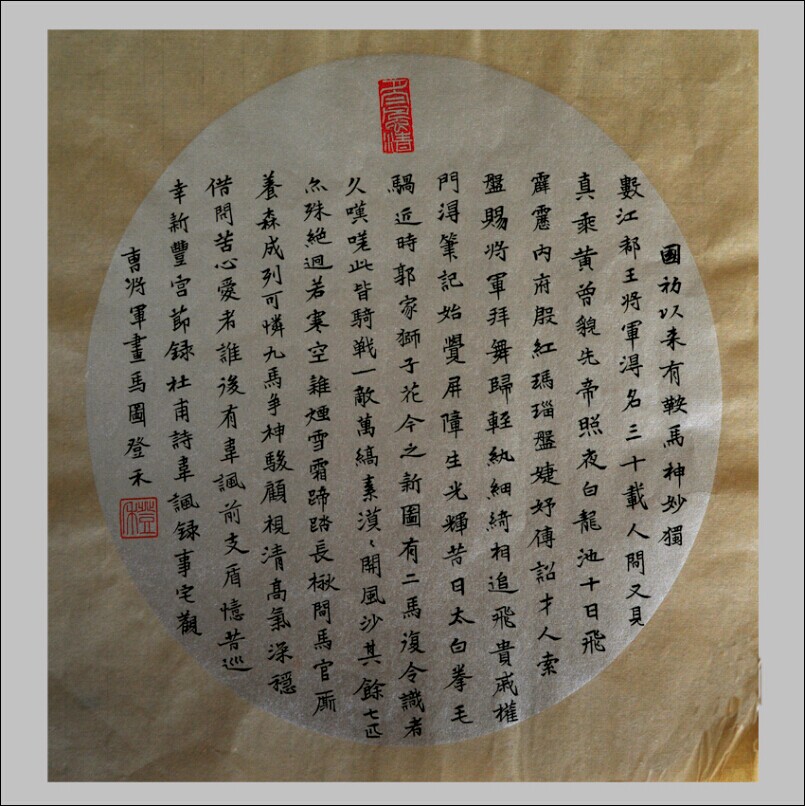 國初以来有鞍馬神妙獨
數江都王將軍得名三十載人間又見
真乘黄曾貌先帝照夜白龍池十日飛
霹靂内府殷紅瑪瑙盤婕妤傳詔才人索
盤賜將軍拜舞歸輕紈細綺相追飛貴戚權
門得筆記始覺屏障生光輝昔日太白拳毛
騧近時郭家獅子花今之新圖有二馬復令識者
久嘆嗟此皆騎戰一敵萬縞素漠〻開風沙其餘七匹
亦殊絶迥若寒空雜煙雪霜蹄踏長楸間馬官廝
養森成列可憐九馬争神駿顧視清高氣深穩
借問苦心愛者誰後有韋諷前支盾憶昔巡
幸新豐宫節録杜甫詩韋諷録事宅觀
曹將軍畫馬圖登禾
登禾